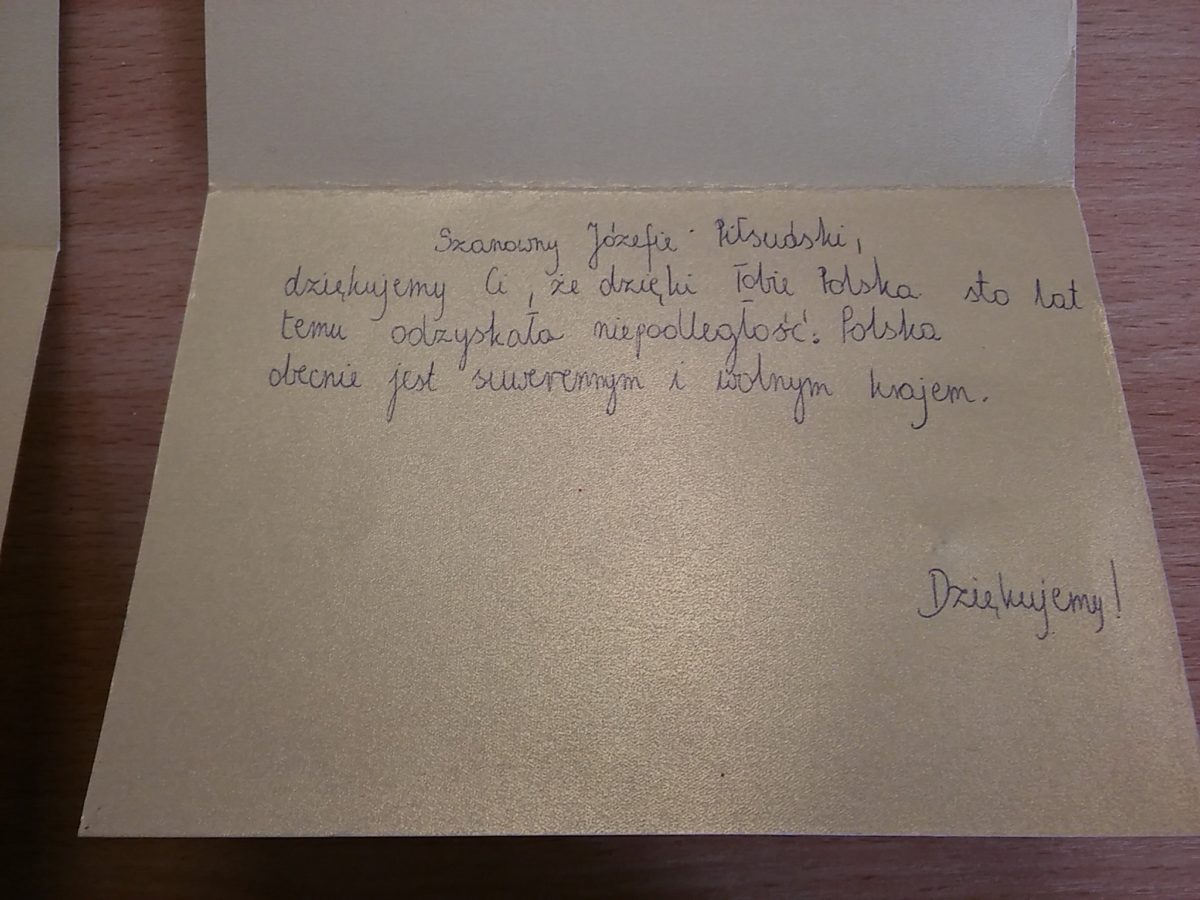 Szanowny Józefie Piłsudski,
dziękujemy Ci, że dzięki Tobie Polska sto lat
temu odzyskała niepodległość. Polska
obecnie jest suwerennym i wolnym krajem.
Dziękujemy!